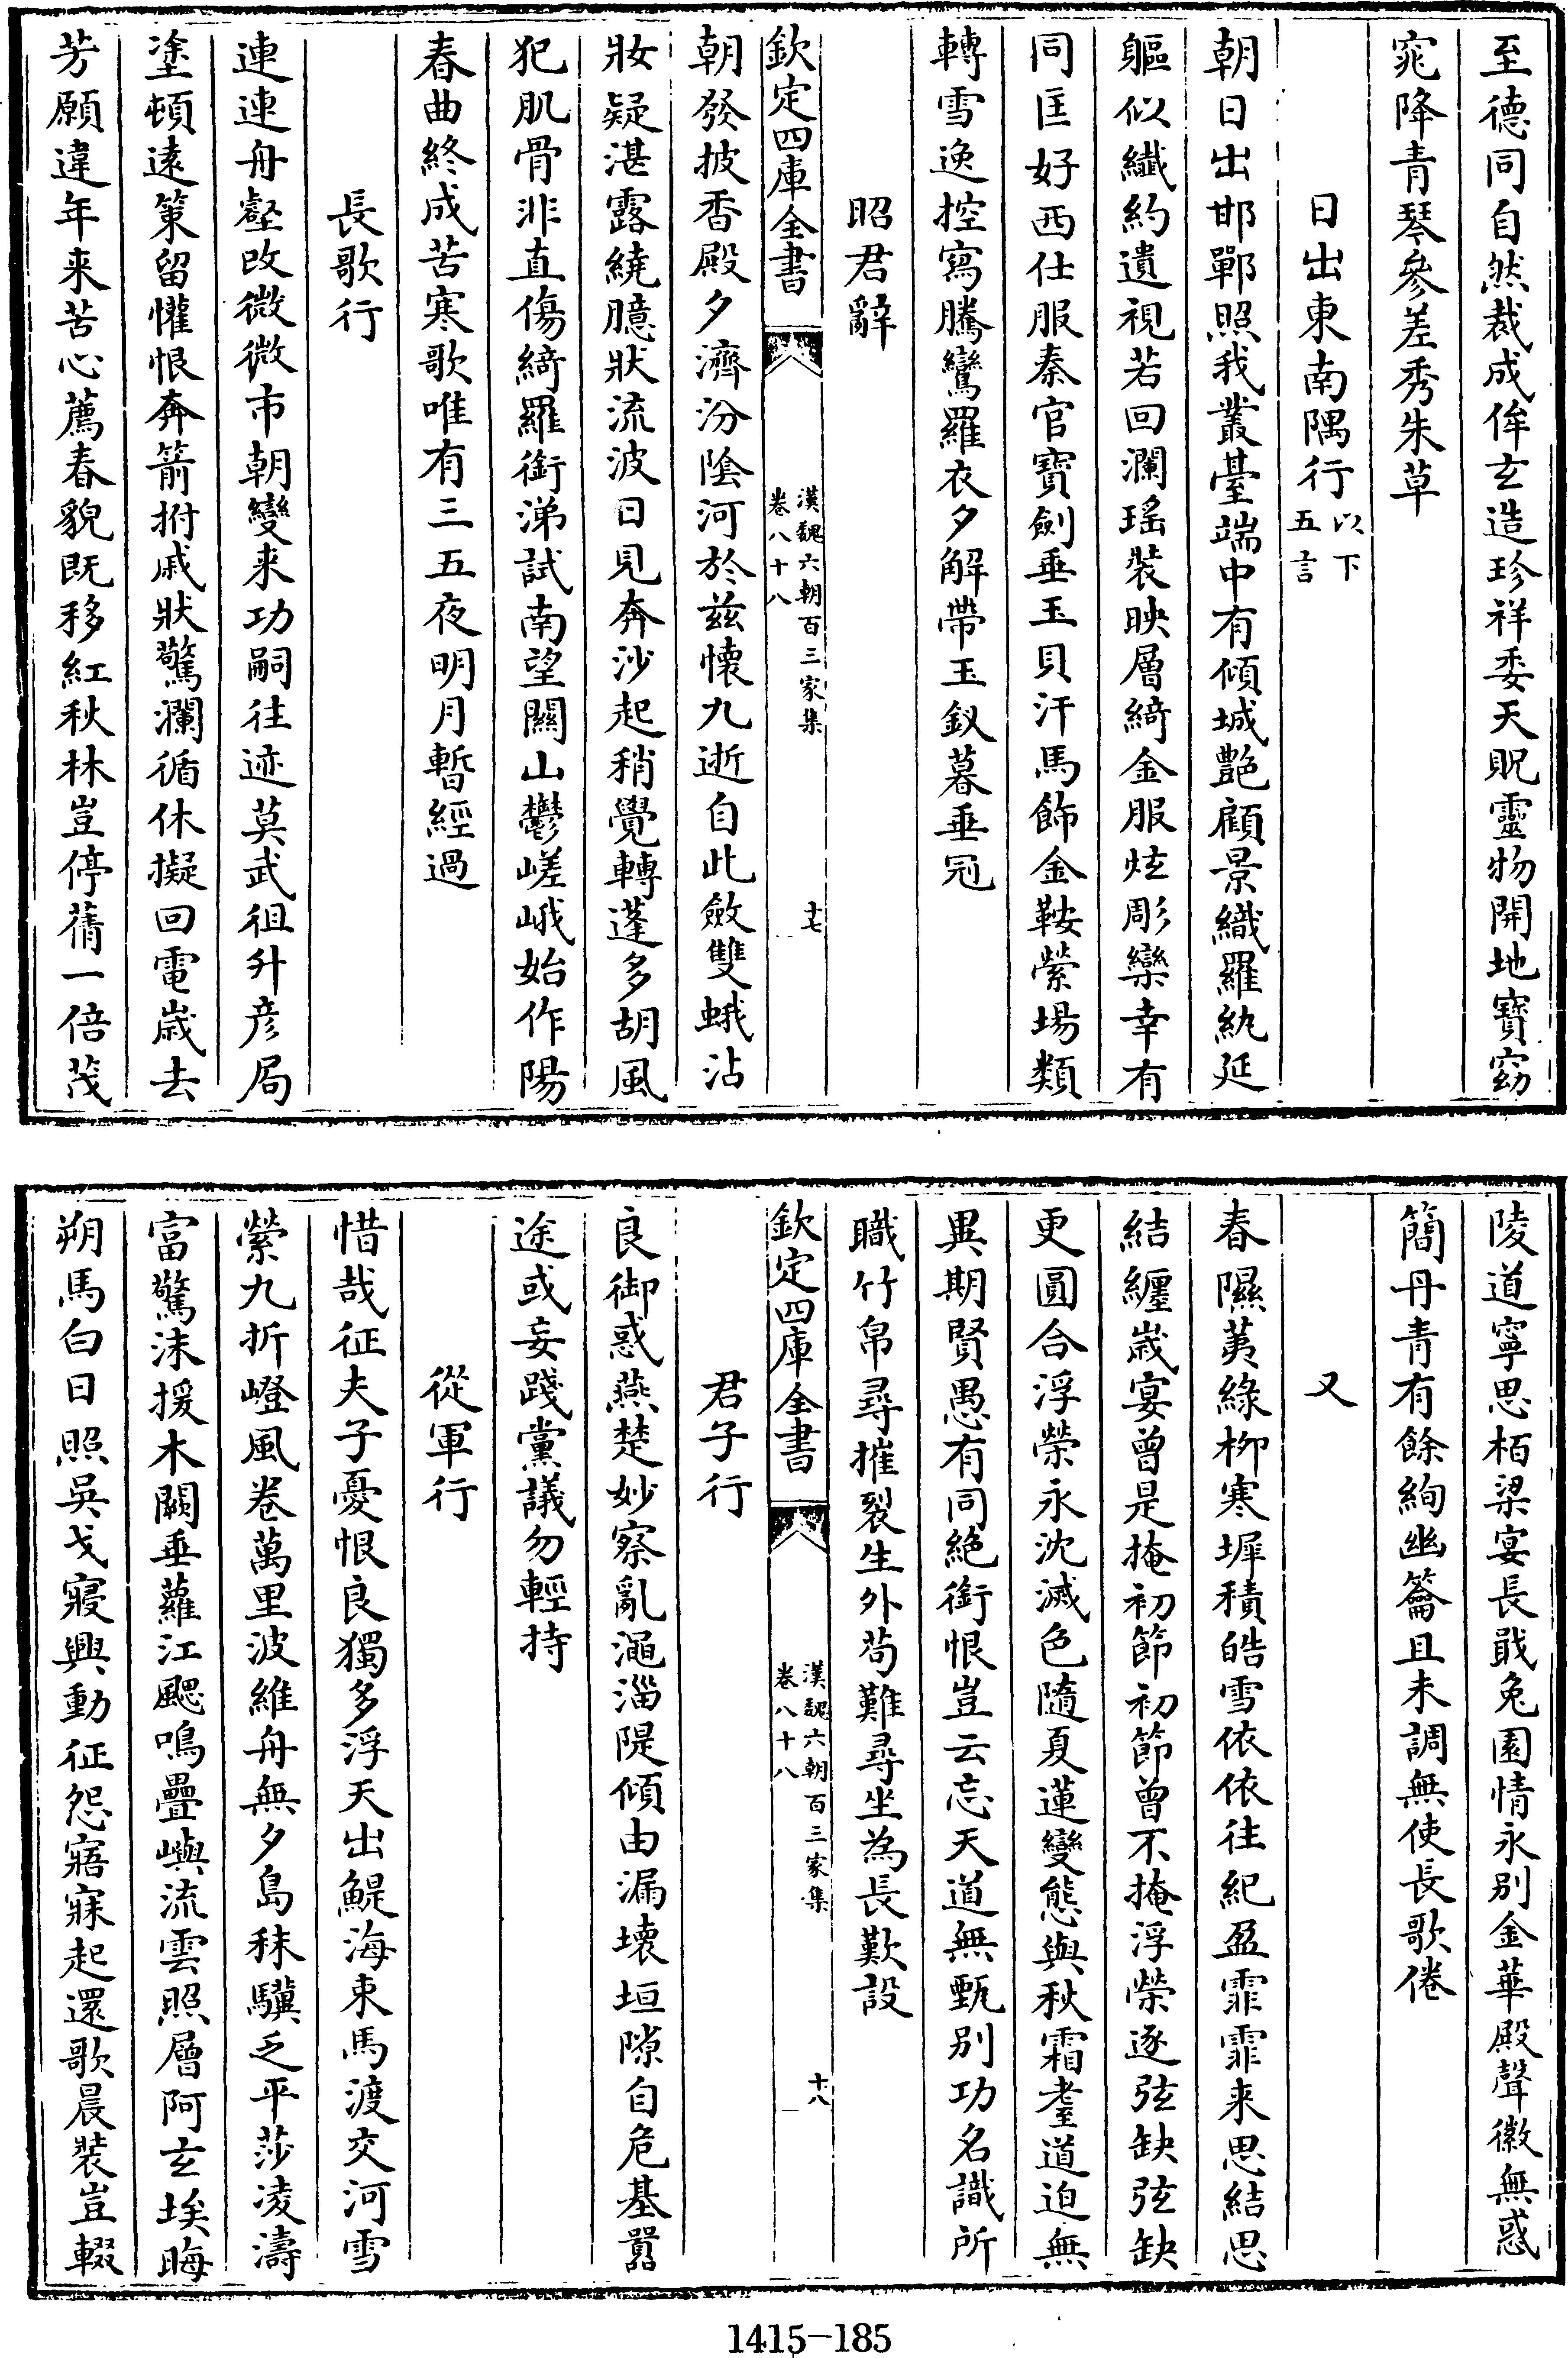 至德同自然裁成侔玄造珍祥委天貺靈物開地寶窈
窕降青琴參差秀朱草
日出東南隅行以下五言
朝日出邯鄲照我叢臺端中有傾城艶顧景織羅紈延
軀似纎約遺視若回瀾瑤裝映層綺金服炫彫欒幸有
同匡好西仕服秦官寶劍垂玉貝汗馬飾金鞍縈場類
轉雪逸控寫騰鸞羅衣夕解帶玉釵暮垂冠
昭君辭
欽定四庫全書
漢魏六朝百三家集
卷八十八
十七
朝發披香殿夕濟汾陰河於兹懷九逝自此斂雙蛾沾
妝疑湛露繞臆狀流波日見奔沙起稍覺轉蓬多胡風
犯肌骨非直傷綺羅銜涕試南望關山鬱嵯峨始作陽
春曲終成苦寒歌唯有三五夜明月暫經過
長歌行
連連舟壑改微微市朝變来功嗣往迹莫武徂升彦局
塗頓逺策留懽恨奔箭拊戚狀驚瀾循休擬回電歲去
芳願違年来苦心薦春貌既移紅秋林豈停蒨一倍茂
陵道寧思栢梁宴長戢兔園情永别金華殿聲徽無惑
簡丹青有餘絢幽籥且未調無使長歌倦
又
春隰荑緑栁寒墀積皓雪依依往紀盈霏霏来思結思
結纏歲宴曾是掩初節初節曾不掩浮榮逐弦缺弦缺
更圓合浮榮永沈滅色隨夏蓮變態與秋霜耋道迫無
異期賢愚有同絶銜恨豈云忘天道無甄别功名識所
職竹帛尋摧裂生外茍難尋坐為長歎設
欽定四庫全書
漢魏六朝百三家集
卷八十八
十八
君子行
良御惑燕楚妙察亂澠淄隄傾由漏壊垣隙自危基嚣
途或妄踐黨議勿輕持
從軍行
惜哉征夫子憂恨良獨多浮天出鯷海束馬渡交河雪
縈九折嶝風卷萬里波維舟無夕島秣驥乏平莎凌濤
富驚沫援木闕垂蘿江颸鳴疊嶼流雲照層阿玄埃晦
朔馬白日照吳戈寢興動征怨寤寐起還歌晨裝豈輟
1415-185